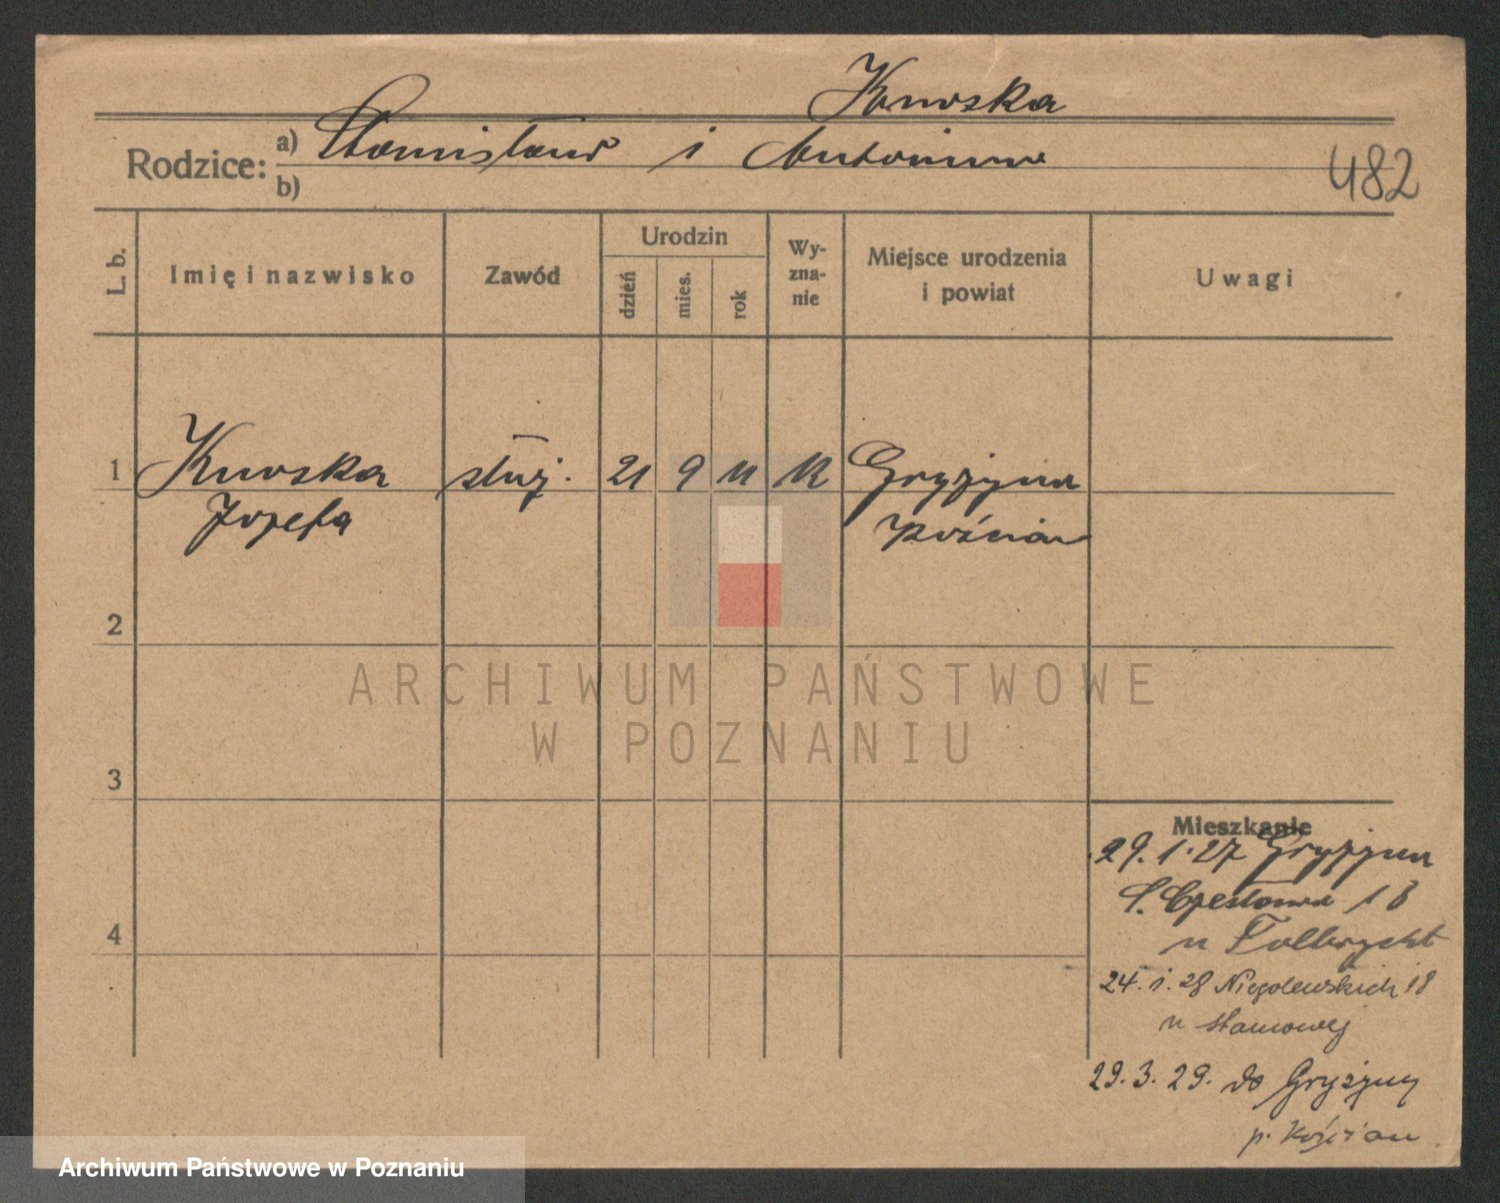 Knoska
Rodzice: a) Stanisław i Antonina
b)
482
L. b.
Imię i nazwisko
Zawód
Urodzin
dzień
mies.
rok
Wy-
zna-
nie
Miejsce urodzenia
i powiat
Uwagi
1 Knoska służ. 21 9 11 K Gryżyna
Józefa Kościan
2
3
4
Mieszkanie
29.1.27 Gryżyna
18
u
24.1.28 Niegolewskich 18
u
29.3.29. do Gryżyny
p. Kościan
ARCHIWUM PAŃSTWOWE
W POZNANIU
Archiwum Państwowe w Poznaniu